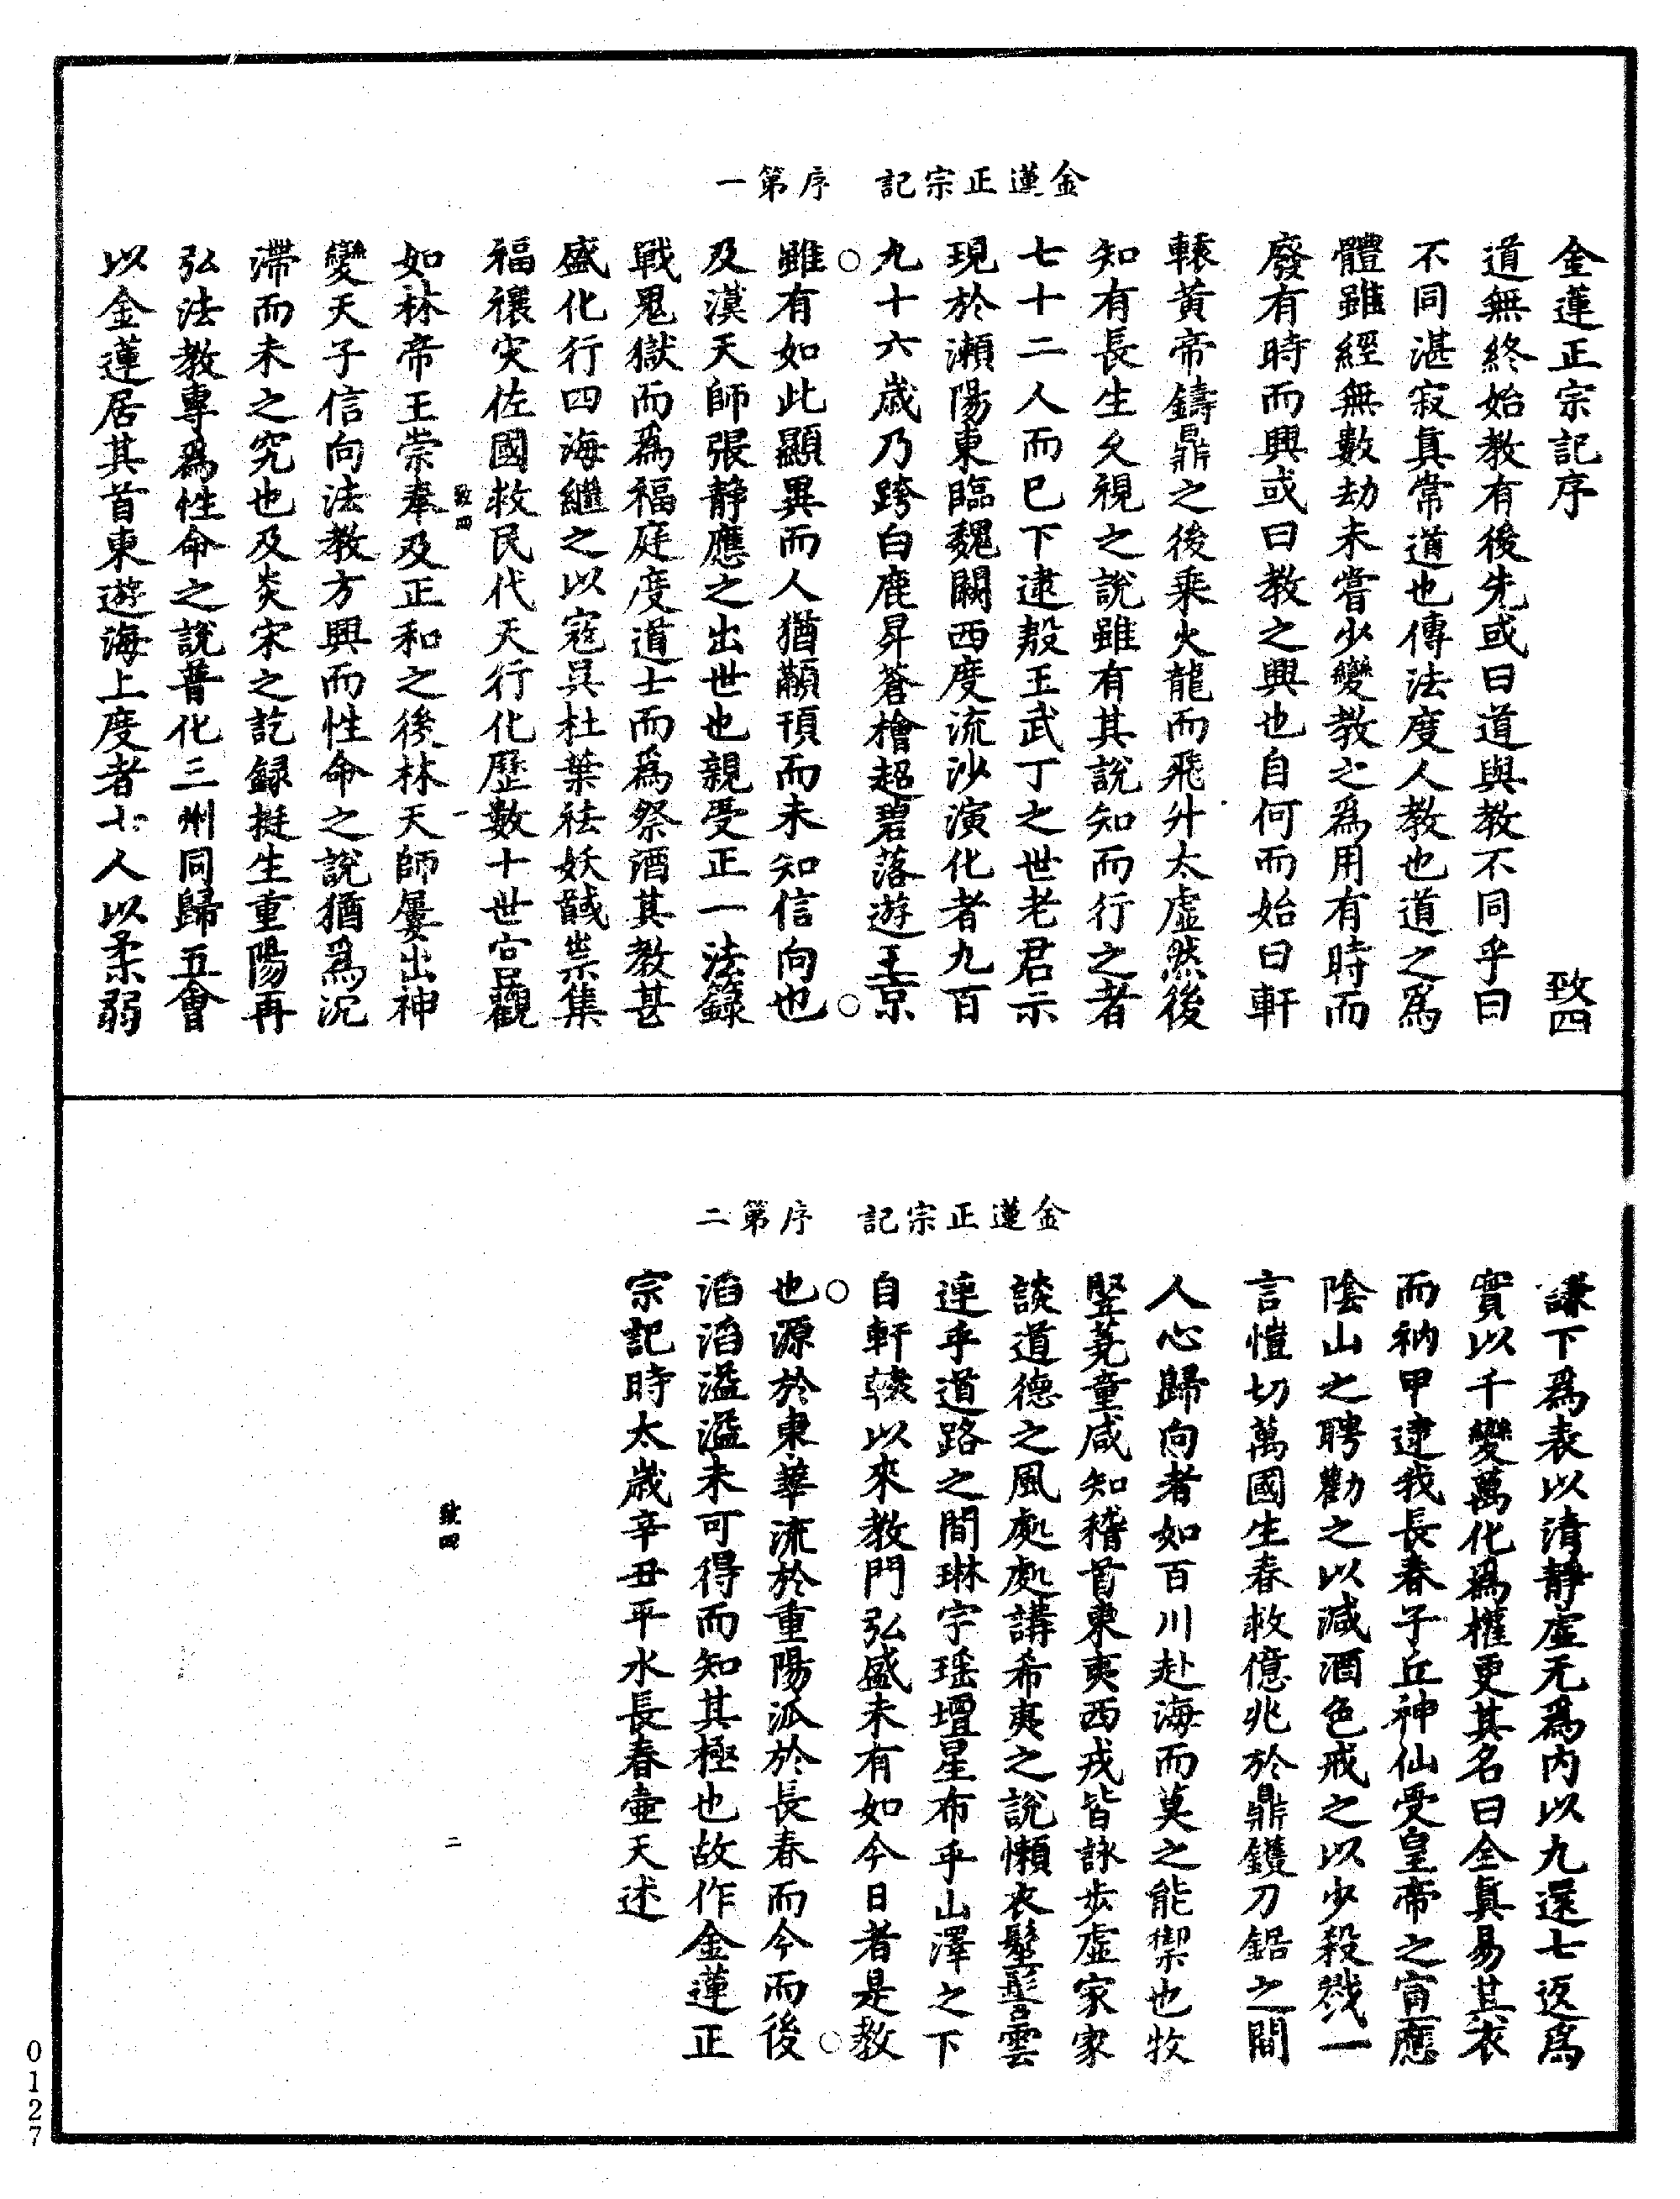 金蓮正宗記　序第一
金蓮正宗記序　致四
道無終始教有後先或曰道與教不同乎曰
不同湛寂真常道也傳法度人教也道之為
體雖經無數劫未嘗少變教之為用有時而
廢有時而興或曰教之興也自何而始曰軒
轅黃帝鑄鼎之後乘火龍而飛升太虛然後
知有長生久視之說雖有其說知而行之者
七十二人而已下逮殷王武丁之世老君示
現於瀨陽東臨魏闕西度流沙演化者九百
九十六歲乃跨白鹿昇蒼檜超碧落遊玉京
雖有如此顯異而人猶顢頇而未知信向也
及漢天師張靜應之出世也親受正一法籙
戰鬼獄而為福庭度道士而為祭酒其教甚
盛化行四海繼之以寇吳杜葉祛妖馘祟集
福禳灾佐國救民代天行化歷數十世宮觀
致四　一
如林帝王崇奉及正和之後林天師屢出神
變天子信向法教方興而性命之說猶為沉
滯而未之究也及炎宋之訖録挺生重陽再
弘法教專為性命之說普化三州同歸五會
以金蓮居其首東遊海上度者七人以柔弱
金蓮正宗記　序第二
謙下為表以清靜虛无為內以九還七返為
實以千變萬化為權更其名曰全真易其衣
而衲甲逮我長春子丘神仙受皇帝之宣應
陰山之聘勸之以減酒色戒之以少殺戮一
言愷切萬國生春救億兆於鼎鑊刀鋸之間
人心歸向者如百川赴海而莫之能禦也牧
豎蕘童咸知稽首東夷西戎皆詠步虛家家
談道德之風處處講希夷之說懶衣髽髻雲
連乎道路之間琳宇瑤壇星布乎山澤之下
自軒轅以來教門弘盛未有如今日者是教
也源於東華流於重陽派於長春而今而後
滔滔溢溢未可得而知其極也故作金蓮正
宗記時太歲辛丑平水長春壺天述
致四　二
0127